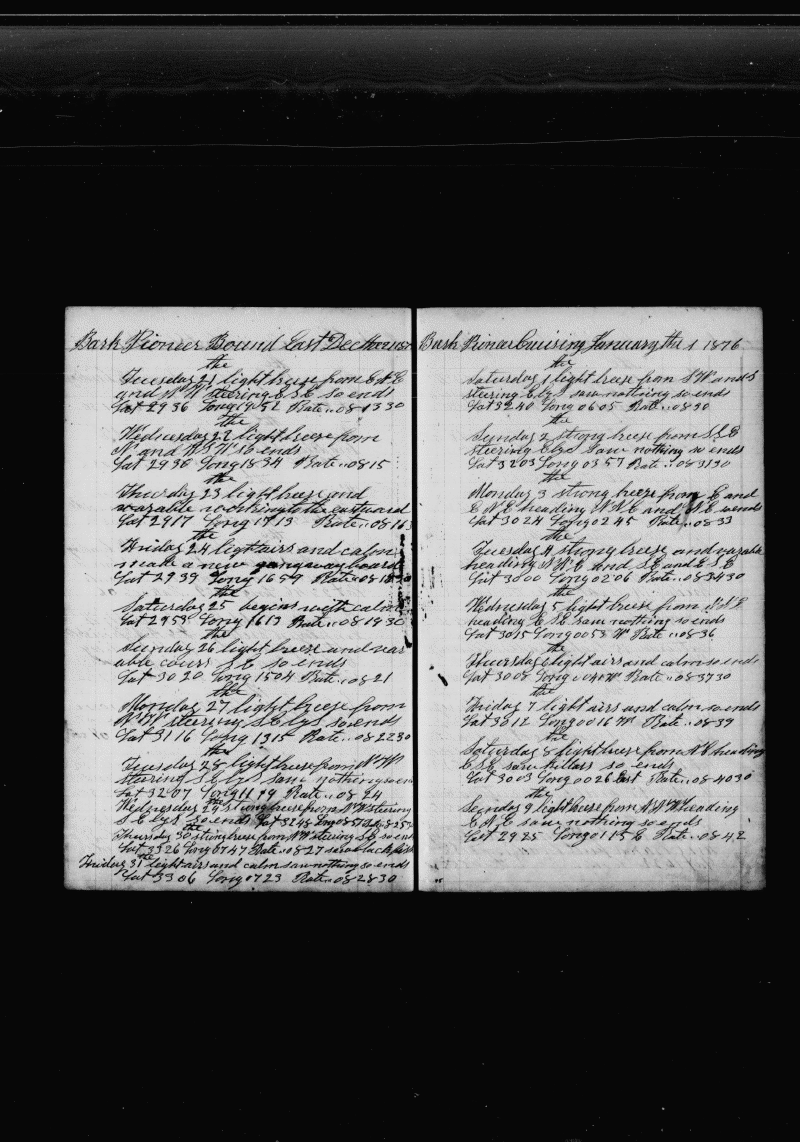 Bark Pioneer Bound East Dec the 21 187
the
Tuesday 21 light breeze from E N E
and N W steering E S E so ends
Lat 29 36 Long 19 52 Rate .. 08 13 30
the
Wednesday 22 light breeze from
N and W S W so ends
Lat 29 38 Long 18 34 Rate .. 08 15
the
Thursday 23 light breeze and
varable working to the eastward
Lat 29 17 Long 17 13 Rate .. 08 16 3
the
Friday 24 light airs and calm
make a new gangway board
Lat 29 39 Long 16 59 Rate .. 08 18
the
Saturday 25 begins with calm
Lat 29 53 Long 16 13 Rate .. 08 19 30
the
Sunday 26 light breeze and var
able cours S E so ends
Lat 30 20 Long 15 04 Rate .. 08 21
the
Monday 27 light breeze from
W N W steering S E by S so ends
Lat 31 16 Long 13 15 Rate .. 08 22 30
the
Tuesday 28 light breeze from N W
steering S E by S saw nothing so en
Lat 32 07 Long 11 19 Rate .. 08 24
Wednesday 29 strong breeze from N W steering
S E by S so ends Lat 32 48 Long 08 57 Rate 08 25
the
Thursday 30 strong breeze from N W steering S E so end
Lat 33 26 Long 07 47 Rate .. 08 27 saw black fish
the
Friday 31 light airs and calm saw nothing so ends
Lat 33 06 Long 07 23 Rate .. 08 28 30
Bark Pioneer Cruising January the 1 1876
the
Saturday 1 light breeze from N W and S
steering E by S saw nothing so ends
Lat 32 40 Long 06 05 Rate .. 08 30
the
Sunday 2 strong breeze from S S E
steering E by S saw nothing so ends
Lat 32 03 Long 03 57 Rate .. 08 31 30
the
Monday 3 strong breeze from E and
E N E heading N N E and N E so ends
Lat 30 24 Long 02 45 Rate .. 08 33
the
Tuesday 4 strong breeze and varable
heading N W E and S E and E S E
Lat 30 00 Long 02 06 Rate .. 08 34 30
the
Wednesday 5 light breeze from N N E
heading E S E saw nothing so ends
Lat 30 15 Long 00 53 W Rate .. 08 36
the
Thursday 6 light airs and calm so ends
Lat 30 08 Long 00 40 W Rate .. 08 37 30
the
Friday 7 light airs and calm so ends
Lat 30 12 Long 00 16 W Rate .. 08 39
the
Saturday 8 light breeze from N E heading
E S E saw killers so ends
Lat 30 03 Long 00 26 East Rate .. 08 40 30
the
Sunday 9 light breeze from N N W heading
E N E saw nothing so ends
Lat 29 25 Long 01 15 E Rate .. 08 42